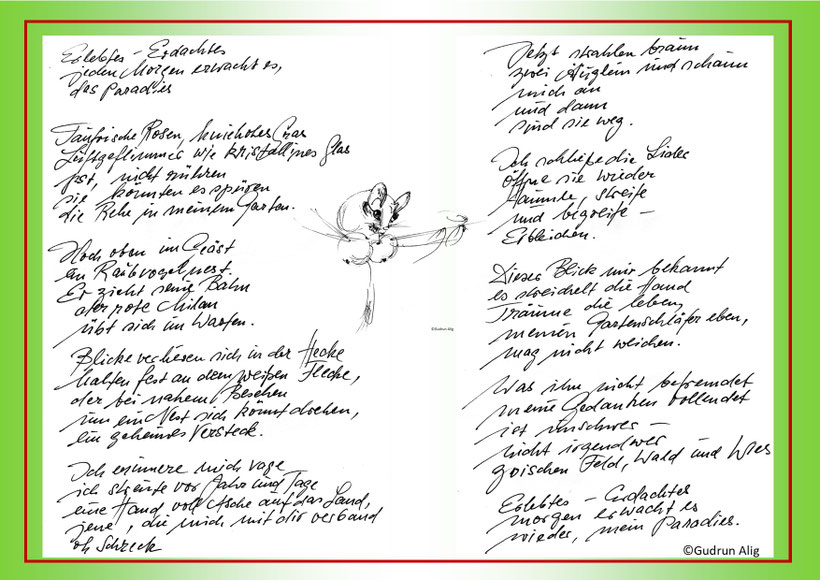 Erlebtes - Erdachtes
jeden Morgen erwacht es,
das Paradies
Taufrische Rosen, kniehohes Gras
Luftgeflimmer wie kristallines Glas
pst, nicht rühren
sie könnten es spüren
die Rehe in meinem Garten.
Hoch oben im Geäst
ein Raubvogelnest.
Er zieht seine Bahn
der rote Milan
übt sich im Warten.
Blicke verlieren sich in der Hecke
halten fest an dem weißen Flecke,
der bei nahem Besehen
um ein Nest sich könnt drehen,
ein geheimes Versteck.
Ich erinnere mich vage
ich streute vor Jahr und Tage
eine Hand voll Asche auf das Land,
jene, die mich mit dir verband
oh Schreck
Jetzt strahlen braun
zwei Äuglein und schaun
mich an
und dann
sind sie weg.
Ich schließe die Lider
öffne sie wieder
staunte, streife
und begreife -
Erbleichen.
Dieser Blick mir bekannt
es streichelt die Hand
Träume die leben,
meinen Gartenschläfer eben,
mag nicht weichen.
Was ihn nicht befremdet
meine Gedanken vollendet
ist unschwer -
nicht irgendwer
zwischen Feld, Wald und Wies
Erlebtes - Erdachtes
morgen erwacht es
wieder, mein Paradies.
©Gudrun Alig
©Gudrun Alig